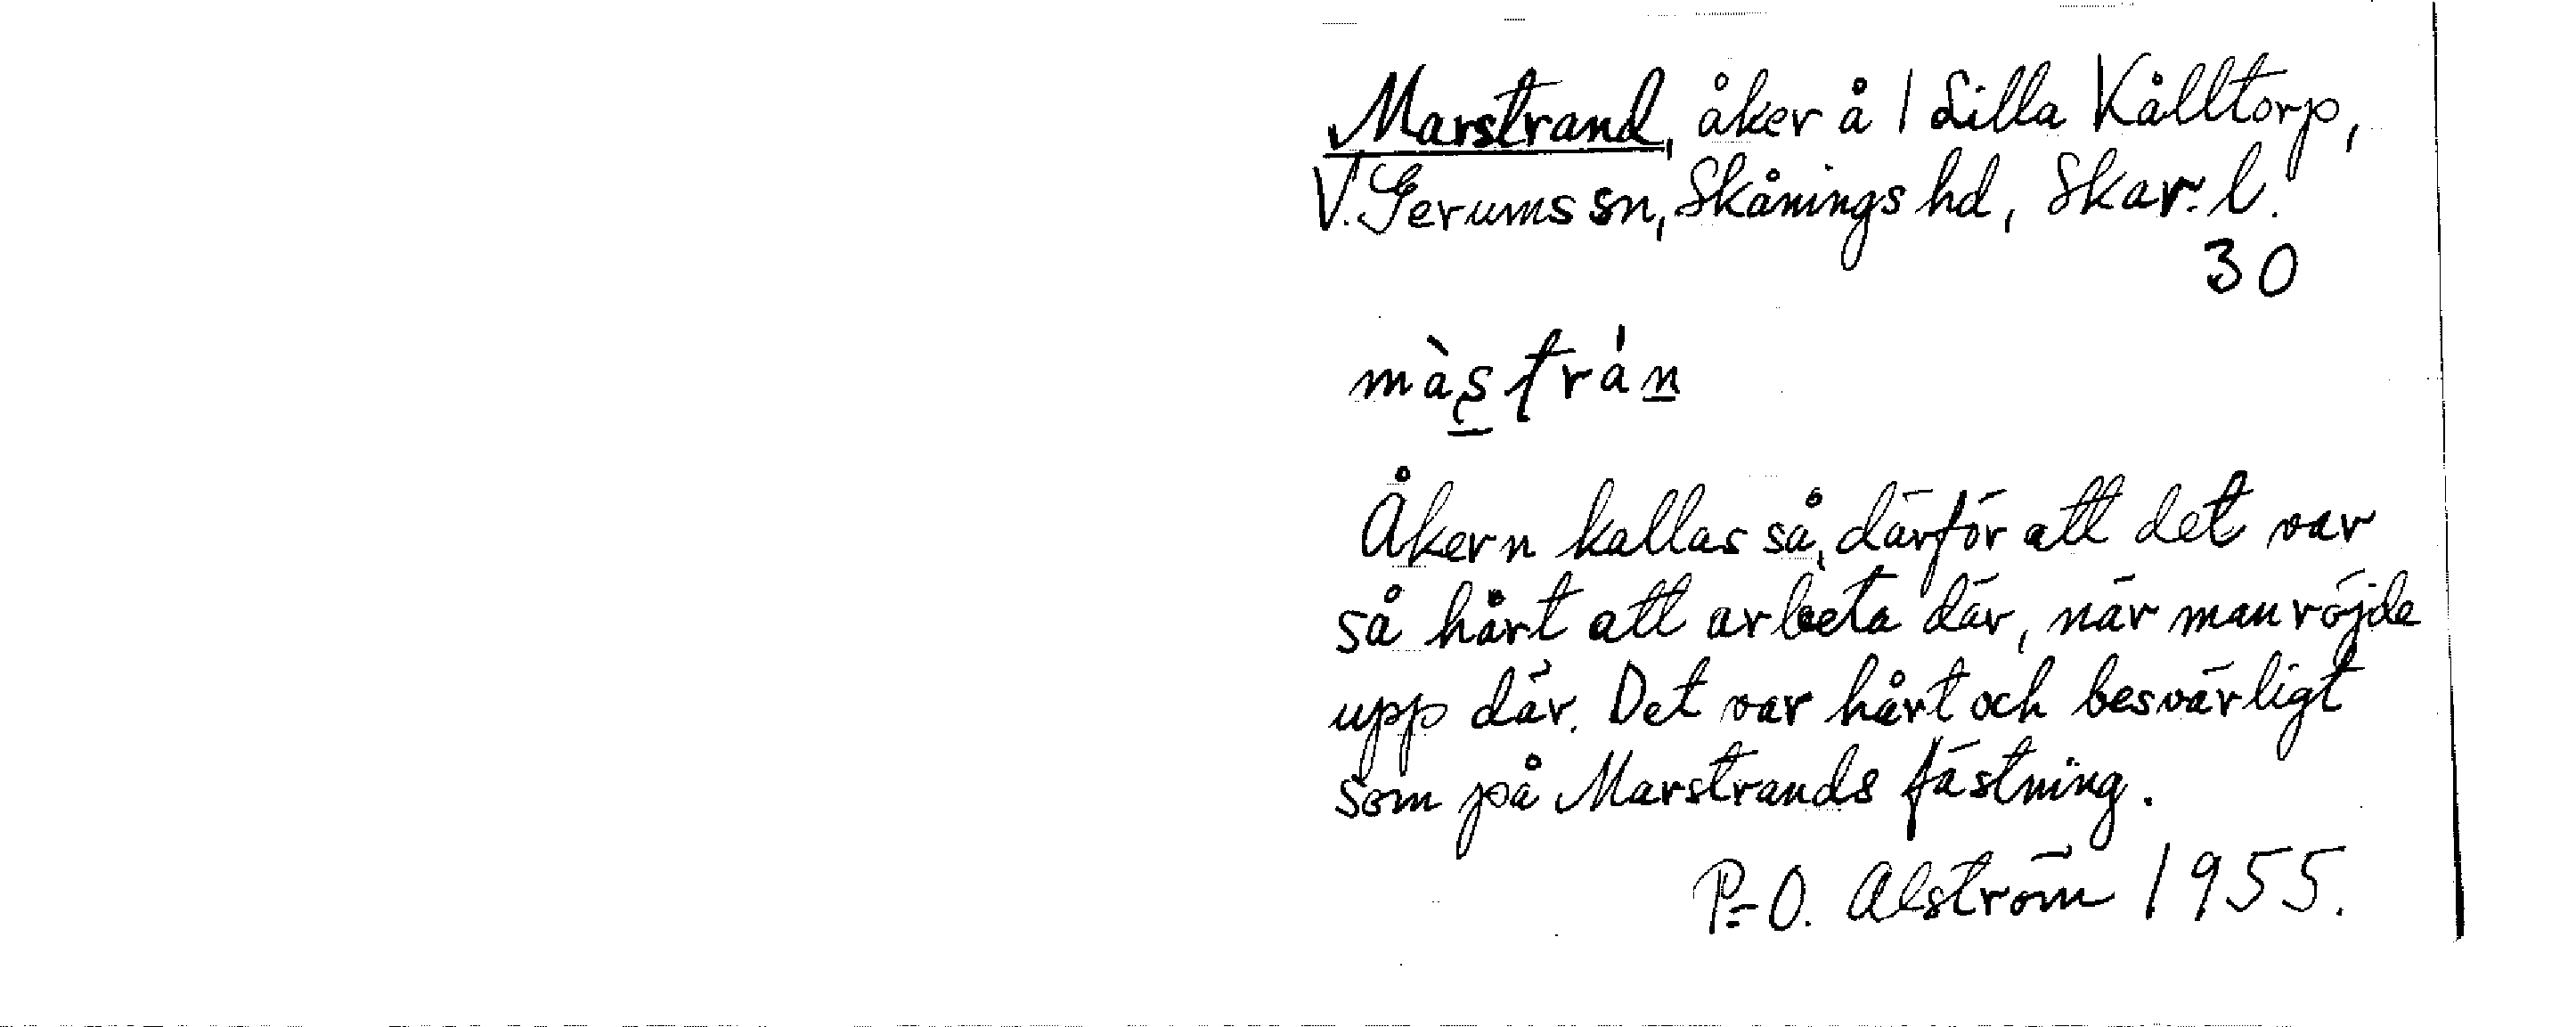 Marstrand, åker å 1 Lilla Kålltorp,
V. Gerums sn, Skånings hd, Skar. l.
30
màstrán
Åkern kallas så, därför att det var
så hårt att arbeta där, när man röjde
upp där. Det var hårt och besvärligt
som på Marstrands fästning.
P-O. Alström 1955.